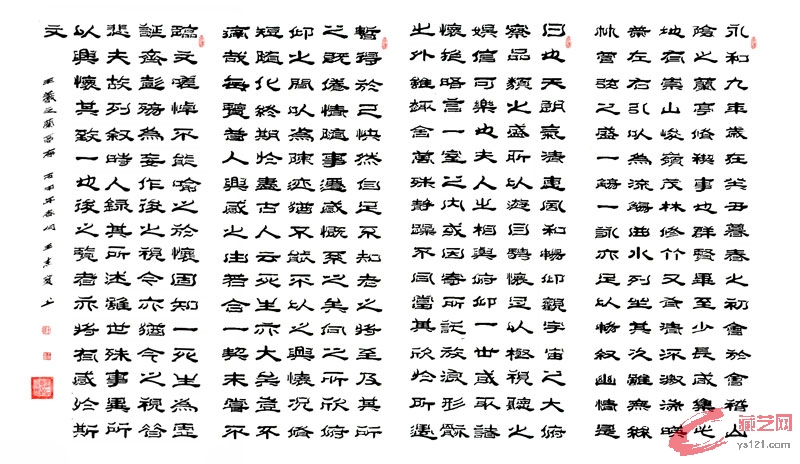 永和九年歲在癸丑暮春之初會於會稽山
陰之蘭亭脩禊事也群賢畢至少長咸集此
地有崇山峻嶺茂林脩竹又有清流激湍映
帶左右引以為流觴曲水列坐其次雖無絲
竹管弦之盛一觴一詠亦足以暢敘幽情是
日也天朗氣清惠風和暢仰觀宇宙之大俯
察品類之盛所以遊目騁懷足以極視聽之
娛信可樂也夫人之相與俯仰一世或取諸
懷抱晤言一室之內或因寄所託放浪形骸
之外雖趣舍萬殊靜躁不同當其欣於所遇
暫得於己快然自足不知老之將至及其所
之既倦情隨事遷感慨係之矣向之所欣俯
仰之間以為陳迹猶不能不以之興懷況脩
短隨化終期於盡古人云死生亦大矣豈不
痛哉每覽昔人興感之由若合一契未嘗不
臨文嗟悼不能喻之於懷固知一死生為虛
誕齊彭殤為妄作後之視今亦猶今之視昔
悲夫故列敘時人錄其所述雖世殊事異所
以興懷其致一也後之覽者亦將有感於斯
文
王羲之蘭亭序
藏艺网
ys121.com